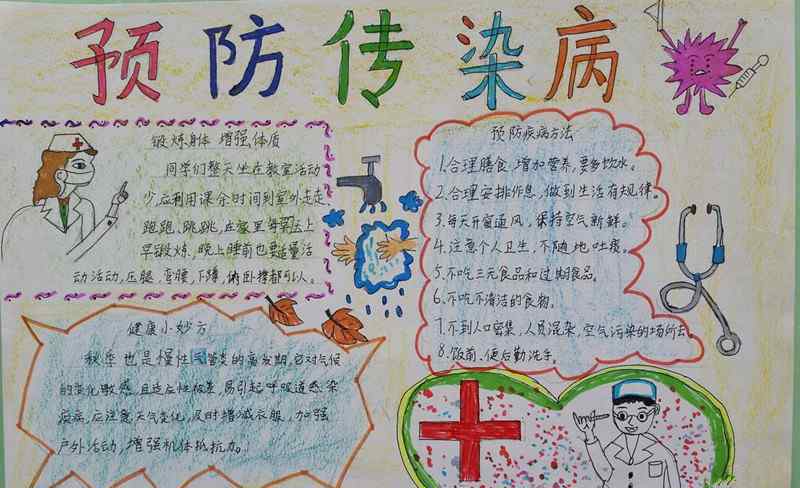 预防传染病
锻炼身体 增强体质
同学们整天坐在教室活动
少,应利用课余时间到室外走走、
跑跑、跳跳,在家里每早上
早锻炼,晚上睡前也要活
动活动,压腿、弯腰、下蹲、俯卧撑都可以。
预防疾病方法
1.合理膳食,增加营养,要多饮水。
2.合理安排作息,做到生活有规律。
3.每天开窗通风,保持空气新鲜。
4.注意个人卫生,不随地吐痰。
5.不吃三元食品和过期食品。
6.不吃不清洁的食物。
7.不到人口密集,人员混杂,空气污染的场所去。
8.饭前、便后勤洗手。
健康小妙方
秋季也是慢性气管炎的高发期,它对气候
的变化敏感,且适应性极差,易引起呼吸道感染
疾病,应注意天气变化,及时增减衣服,加强
户外活动,增强机体抵抗力。